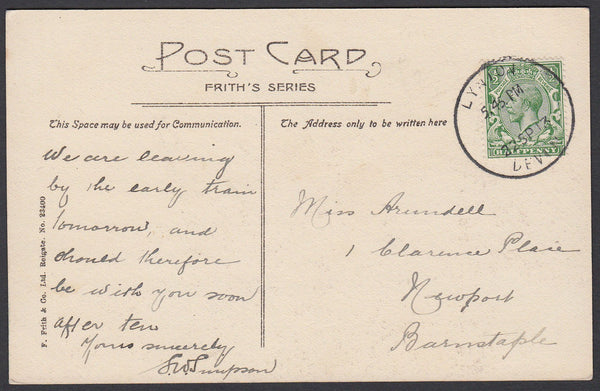 POST CARD
FRITH'S SERIES
This Space may be used for Communication.
The Address only to be written here
We are leaving
by the early train
tomorrow, and
should therefore
be with you soon
after ten
Yours sincerely
S.W. Simpson
Miss Arundell
1 Clarence Place
Newport
Barnstaple
F. Frith & Co. Ltd. Reigate. No. 23400
LYNTON
5.45 PM
SP 13
DEVON
HALF PENNY